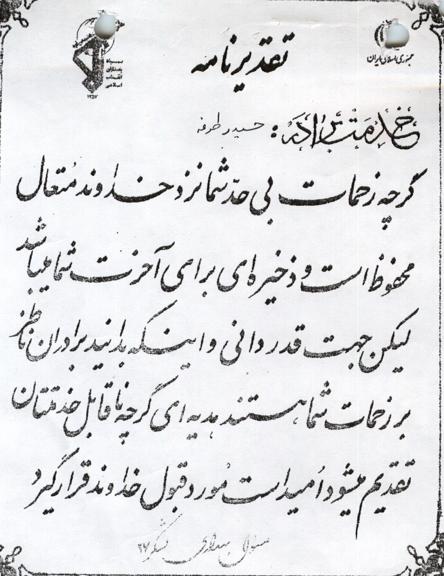 جمهوری اسلامی ایران
سپاه
پاسداران
انقلاب
اسلامی
تقدیرنامه
خدمت برادر: حیدر طرفه
گرچه زحمات بی حدّ شما نزد خداوند مُتعال
محفوظ است و ذخیره‌ای برای آخرت شما میباشد
لیکن جهت قدردانی و اینکه بدانید برادران ناظر
بر زحمات شما هستند هدیه‌ای گرچه ناقابل خدمتتان
تقدیم میشود اُمید است مُورد قبول خداوند قرار گیرد
مسئول بهداری لشگر ۲۷